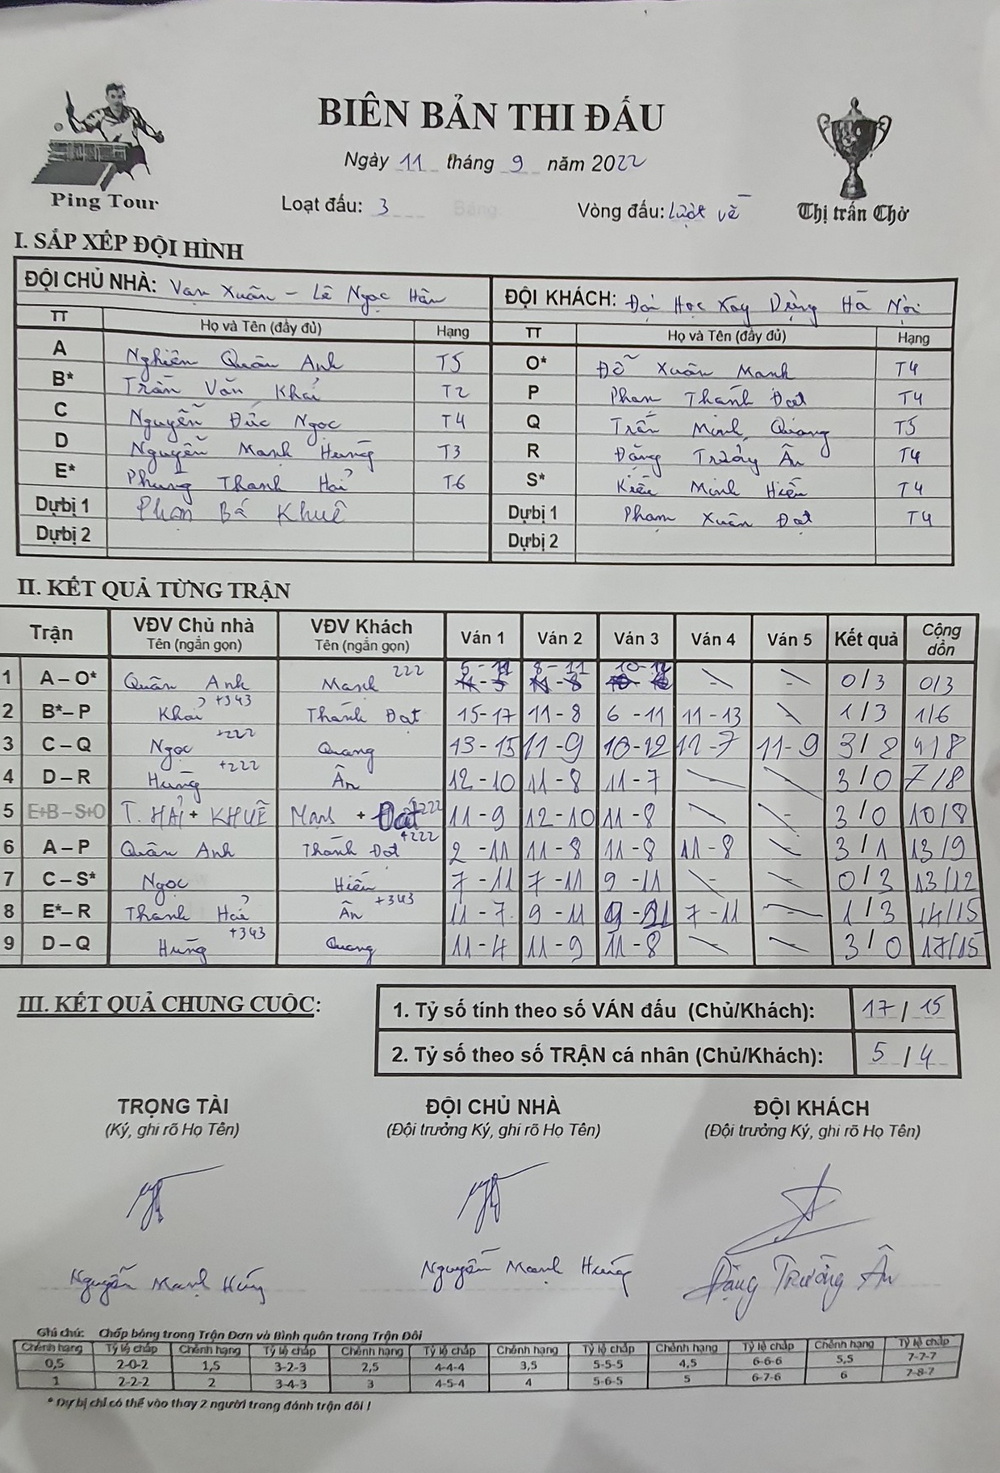 BIÊN BẢN THI ĐẤU
Ngày 11 tháng 9 năm 2022
Ping Tour
Loạt đấu: 3 Bảng
Vòng đấu: Lượt về
Thị trấn Chờ
I. SẮP XẾP ĐỘI HÌNH
ĐỘI CHỦ NHÀ: Vạn Xuân - Lê Ngọc Hân ĐỘI KHÁCH: Đại Học Xây Dựng Hà Nội
TT Họ và Tên (đầy đủ) Hạng TT Họ và Tên (đầy đủ) Hạng
A Nghiêm Quân Anh T5 O* Đỗ Xuân Mạnh T4
B* Trần Văn Khải T2 P Phan Thành Đạt T4
C Nguyễn Đức Ngọc T4 Q Trần Minh Quang T5
D Nguyễn Mạnh Hùng T3 R Đặng Trường Ân T4
E* Phùng Thanh Hải T6 S* Kiều Minh Hiếu T4
Dự bị 1 Phan Bá Khuê Dự bị 1 Phạm Xuân Đạt T4
Dự bị 2 Dự bị 2
II. KẾT QUẢ TỪNG TRẬN
Trận VĐV Chủ nhà Tên (ngắn gọn) VĐV Khách Tên (ngắn gọn) Ván 1 Ván 2 Ván 3 Ván 4 Ván 5 Kết quả Cộng dồn
1 A – O* Quân Anh Mạnh 222 5-11 8-11 10-12 0/3 0/3
2 B* – P Khải +343 Thành Đạt 15-17 11-8 6-11 11-13 1/3 1/6
3 C – Q Ngọc +222 Quang 13-15 11-9 10-12 12-7 11-9 3/2 4/8
4 D – R Hùng +222 Ân 12-10 11-8 11-7 3/0 7/8
5 E+B – S+O T. HẢI + KHUÊ Mạnh + Đạt +222 11-9 12-10 11-8 3/0 10/8
6 A – P Quân Anh Thành Đạt +222 2-11 11-8 11-8 11-8 3/1 13/9
7 C – S* Ngọc Hiếu 7-11 7-11 9-11 0/3 13/12
8 E* – R Thanh Hải Ân +343 11-7 9-11 9-11 7-11 1/3 14/15
9 D – Q Hùng +343 Quang 11-4 11-9 11-8 3/0 17/15
III. KẾT QUẢ CHUNG CUỘC:
1. Tỷ số tính theo số VÁN đấu (Chủ/Khách): 17 / 15
2. Tỷ số theo số TRẬN cá nhân (Chủ/Khách): 5 / 4
TRỌNG TÀI ĐỘI CHỦ NHÀ ĐỘI KHÁCH
(Ký, ghi rõ Họ Tên) (Đội trưởng Ký, ghi rõ Họ Tên) (Đội trưởng Ký, ghi rõ Họ Tên)
Nguyễn Mạnh Hùng Nguyễn Mạnh Hùng Đặng Trường Ân
Ghi chú: Chấp bóng trong Trận Đơn và Bình quân trong Trận Đôi
Chênh hạng Tỷ lệ chấp Chênh hạng Tỷ lệ chấp Chênh hạng Tỷ lệ chấp Chênh hạng Tỷ lệ chấp Chênh hạng Tỷ lệ chấp Chênh hạng Tỷ lệ chấp
0,5 2-0-2 1,5 3-2-3 2,5 4-4-4 3,5 5-5-5 4,5 6-6-6 5,5 7-7-7
1 2-2-2 2 3-4-3 3 4-5-4 4 5-6-5 5 6-7-6 6 7-8-7
* Dự bị chỉ có thể vào thay 2 người trong đánh trận đôi !